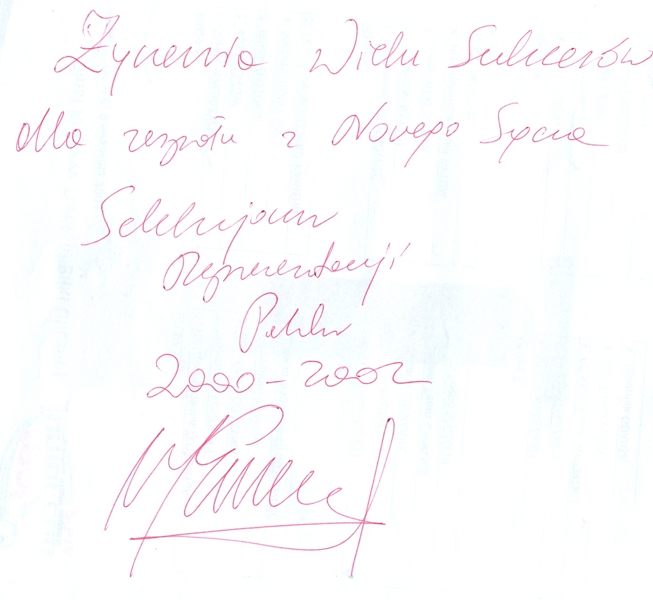 Życzenia Wielu Sukcesów
dla zespołu z Nowego Sącza
Selekcjoner
Reprezentacji
Polski
2000-2002